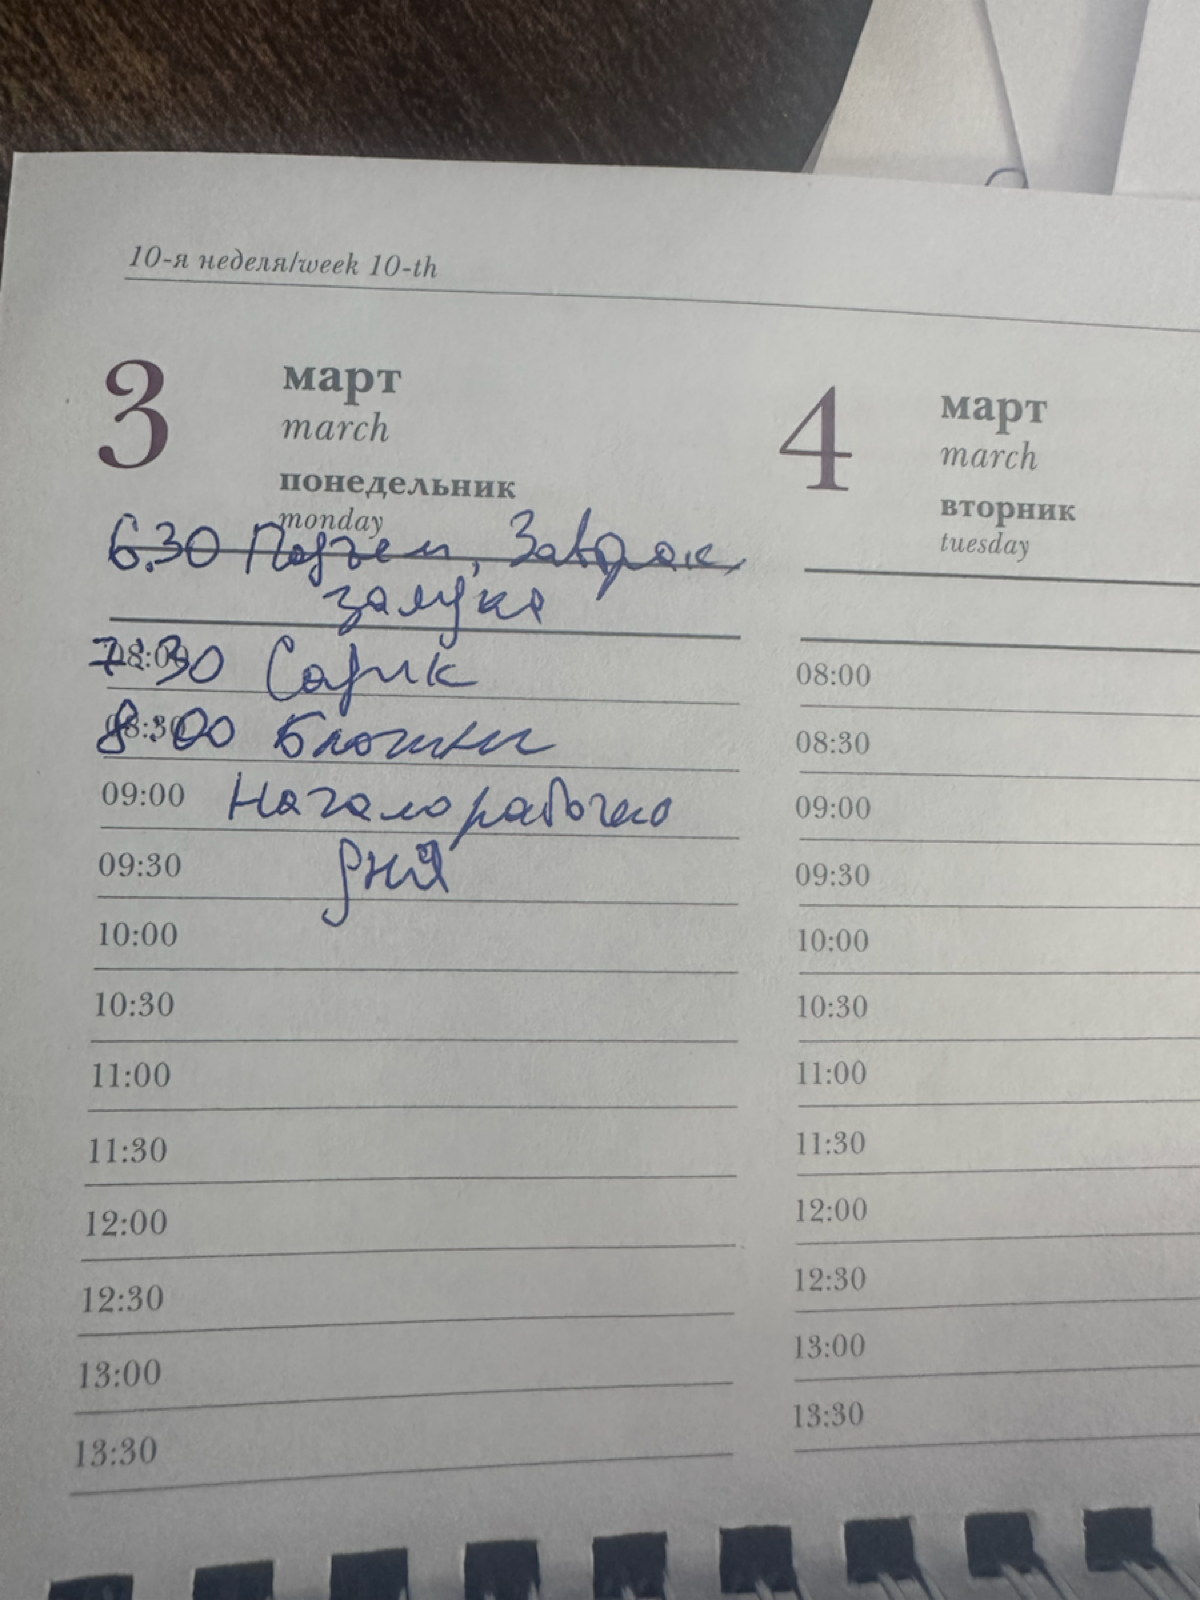 10-я неделя/week 10-th
3 март
march
понедельник
monday
6.30 Подъем, Завтрак,
7:30 Садик
8:00
09:00 Начало рабочего
09:30 дня
10:00
10:30
11:00
11:30
12:00
12:30
13:00
13:30
4 март
march
вторник
tuesday
08:00
08:30
09:00
09:30
10:00
10:30
11:00
11:30
12:00
12:30
13:00
13:30